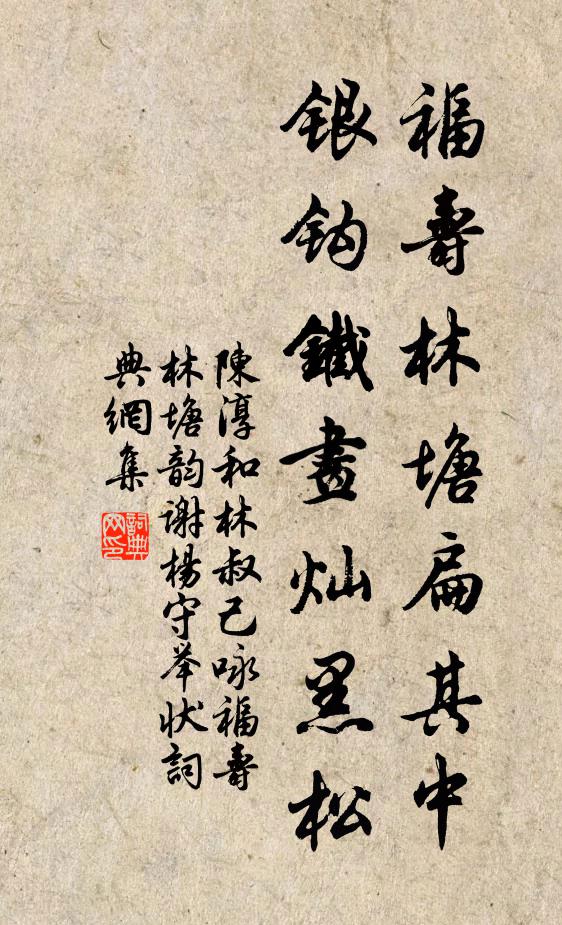 福壽林塘扁其中
銀鈎鐵畫灿黑松
陳淳和林叔己咏福壽
林塘韵谢楊守举状詞
典網集
詞典
网印